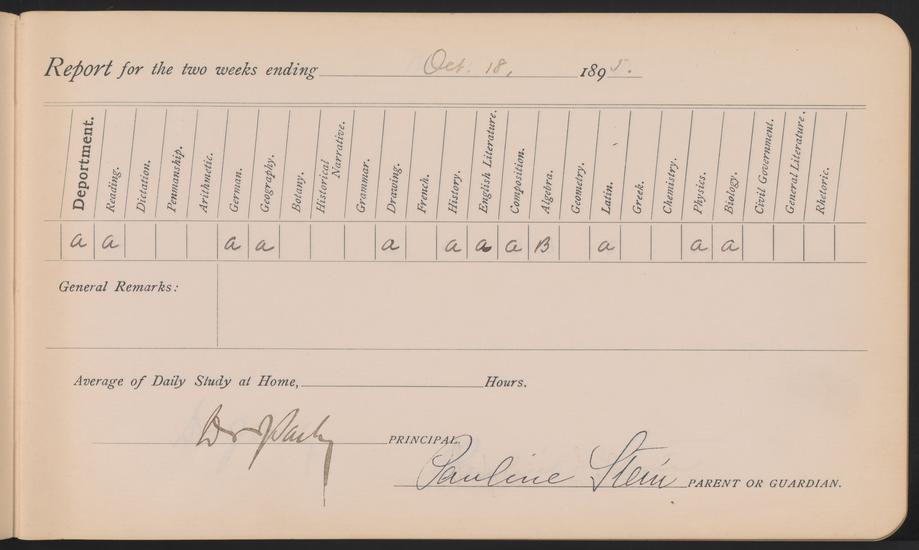 Report for the two weeks ending Oct. 18, 1895.
Deportment. Reading. Dictation. Penmanship. Arithmetic. German. Geography. Botany. Historical Narrative. Grammar. Drawing. French. History. English Literature. Composition. Algebra. Geometry. Latin. Greek. Chemistry. Physics. Biology. Civil Government. General Literature. Rhetoric.
a a a a a a a a B a a a
General Remarks:
Average of Daily Study at Home, Hours.
PRINCIPAL.
Pauline Stein PARENT OR GUARDIAN.